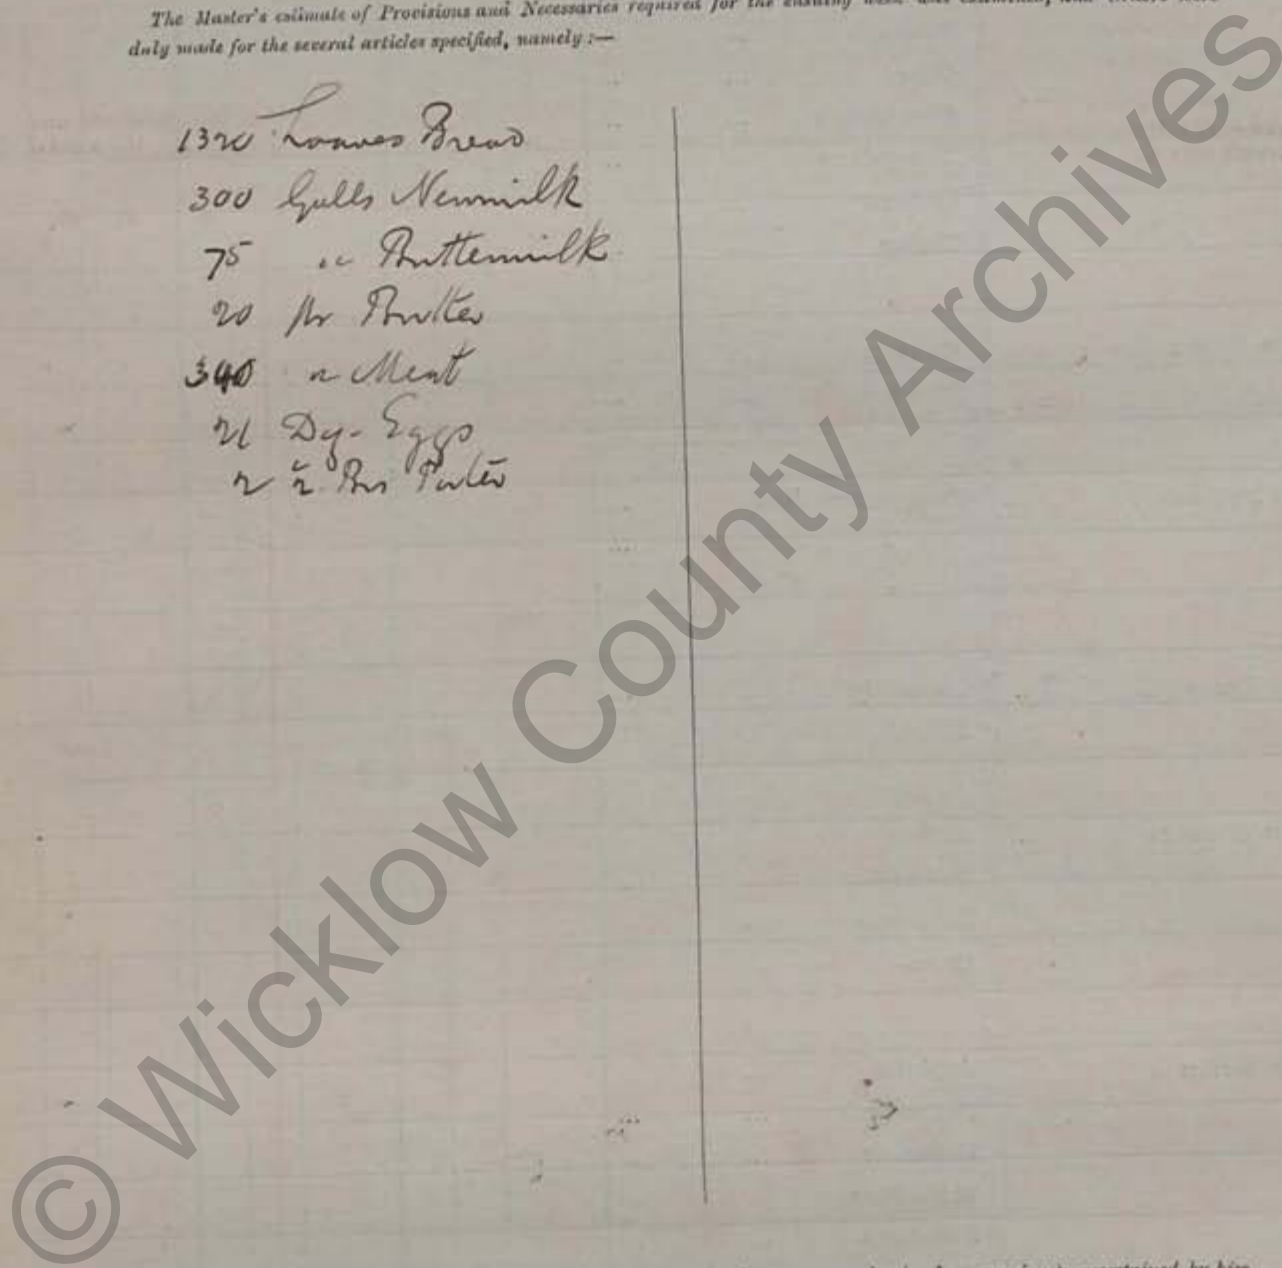 The Master's estimate of Provisions and Necessaries required for the ensuing week was
duly made for the several articles specified, namely :—
1320 Loaves Bread
300 Galls Newmilk
75 " Buttermilk
20 lbs Butter
340 " Meat
21 Dz- Eggs
2 Porter
© Wicklow County Archives